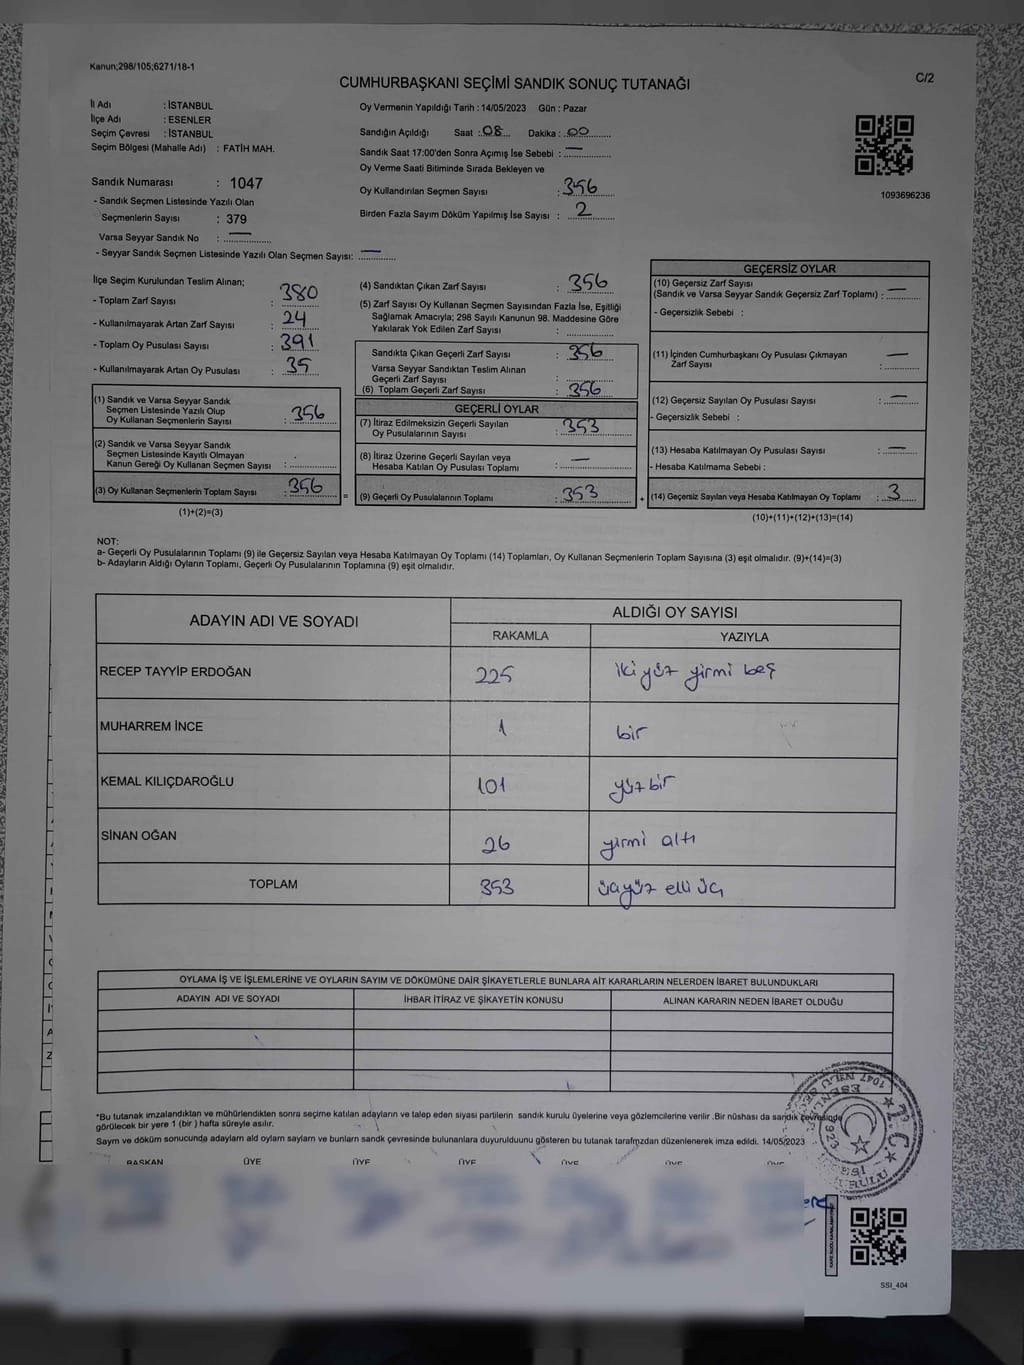 Kanun;298/105;6271/18-1
C/2
CUMHURBAŞKANI SEÇİMİ SANDIK SONUÇ TUTANAĞI
İl Adı : İSTANBUL
İlçe Adı : ESENLER
Seçim Çevresi : İSTANBUL
Seçim Bölgesi (Mahalle Adı) : FATİH MAH.
Oy Vermenin Yapıldığı Tarih : 14/05/2023 Gün : Pazar
Sandığın Açıldığı Saat : 08 Dakika : 00
Sandık Saat 17:00'den Sonra Açımış İse Sebebi : —
Oy Verme Saati Bitiminde Sırada Bekleyen ve
Oy Kullandırılan Seçmen Sayısı : 356
Birden Fazla Sayım Döküm Yapılmış İse Sayısı : 2
1093696236
Sandık Numarası : 1047
- Sandık Seçmen Listesinde Yazılı Olan
Seçmenlerin Sayısı : 379
Varsa Seyyar Sandık No : —
- Seyyar Sandık Seçmen Listesinde Yazılı Olan Seçmen Sayısı: —
İlçe Seçim Kurulundan Teslim Alınan;
- Toplam Zarf Sayısı : 380
- Kullanılmayarak Artan Zarf Sayısı : 24
- Toplam Oy Pusulası Sayısı : 391
- Kullanılmayarak Artan Oy Pusulası : 35
(1) Sandık ve Varsa Seyyar Sandık
Seçmen Listesinde Yazılı Olup
Oy Kullanan Seçmenlerin Sayısı : 356
(2) Sandık ve Varsa Seyyar Sandık
Seçmen Listesinde Kayıtlı Olmayan
Kanun Gereği Oy Kullanan Seçmen Sayısı :
(3) Oy Kullanan Seçmenlerin Toplam Sayısı : 356
(1)+(2)=(3)
(4) Sandıktan Çıkan Zarf Sayısı : 356
(5) Zarf Sayısı Oy Kullanan Seçmen Sayısından Fazla İse, Eşitliği
Sağlamak Amacıyla; 298 Sayılı Kanunun 98. Maddesine Göre
Yakılarak Yok Edilen Zarf Sayısı :
Sandıkta Çıkan Geçerli Zarf Sayısı : 356
Varsa Seyyar Sandıktan Teslim Alınan
Geçerli Zarf Sayısı :
(6) Toplam Geçerli Zarf Sayısı : 356
GEÇERLİ OYLAR
(7) İtiraz Edilmeksizin Geçerli Sayılan
Oy Pusulalarının Sayısı : 353
(8) İtiraz Üzerine Geçerli Sayılan veya
Hesaba Katılan Oy Pusulası Toplamı : —
= (9) Geçerli Oy Pusulalarının Toplamı : 353
GEÇERSİZ OYLAR
(10) Geçersiz Zarf Sayısı
(Sandık ve Varsa Seyyar Sandık Geçersiz Zarf Toplamı) : —
- Geçersizlik Sebebi :
(11) İçinden Cumhurbaşkanı Oy Pusulası Çıkmayan
Zarf Sayısı : —
(12) Geçersiz Sayılan Oy Pusulası Sayısı : —
- Geçersizlik Sebebi :
(13) Hesaba Katılmayan Oy Pusulası Sayısı : —
- Hesaba Katılmama Sebebi :
+ (14) Geçersiz Sayılan veya Hesaba Katılmayan Oy Toplamı : 3
(10)+(11)+(12)+(13)=(14)
NOT:
a- Geçerli Oy Pusulalarının Toplamı (9) ile Geçersiz Sayılan veya Hesaba Katılmayan Oy Toplamı (14) Toplamları, Oy Kullanan Seçmenlerin Toplam Sayısına (3) eşit olmalıdır. (9)+(14)=(3)
b- Adayların Aldığı Oyların Toplamı, Geçerli Oy Pusulalarının Toplamına (9) eşit olmalıdır.
ADAYIN ADI VE SOYADI
ALDIĞI OY SAYISI
RAKAMLA YAZIYLA
RECEP TAYYİP ERDOĞAN 225 iki yüz yirmi beş
MUHARREM İNCE 1 bir
KEMAL KILIÇDAROĞLU 101 yüz bir
SİNAN OĞAN 26 yirmi altı
TOPLAM 353 üçyüz elli üç
OYLAMA İŞ VE İŞLEMLERİNE VE OYLARIN SAYIM VE DÖKÜMÜNE DAİR ŞİKAYETLERLE BUNLARA AİT KARARLARIN NELERDEN İBARET BULUNDUKLARI
ADAYIN ADI VE SOYADI İHBAR İTİRAZ VE ŞİKAYETİN KONUSU ALINAN KARARIN NEDEN İBARET OLDUĞU
*Bu tutanak imzalandıktan ve mühürlendikten sonra seçime katılan adayların ve talep eden siyasi partilerin sandık kurulu üyelerine veya gözlemcilerine verilir .Bir nüshası da sandık çevresinde
görülecek bir yere 1 (bir ) hafta süreyle asılır.
Saym ve döküm sonucunda adaylarn ald oylarn saylarn ve bunlarn sandk çevresinde bulunanlara duyurulduunu gösteren bu tutanak tarafmzdan düzenlenerek imza edildi. 14/05/2023
BAŞKAN ÜYE ÜYE ÜYE ÜYE ÜYE ÜYE
T.C.
1047
1923
SSI_404